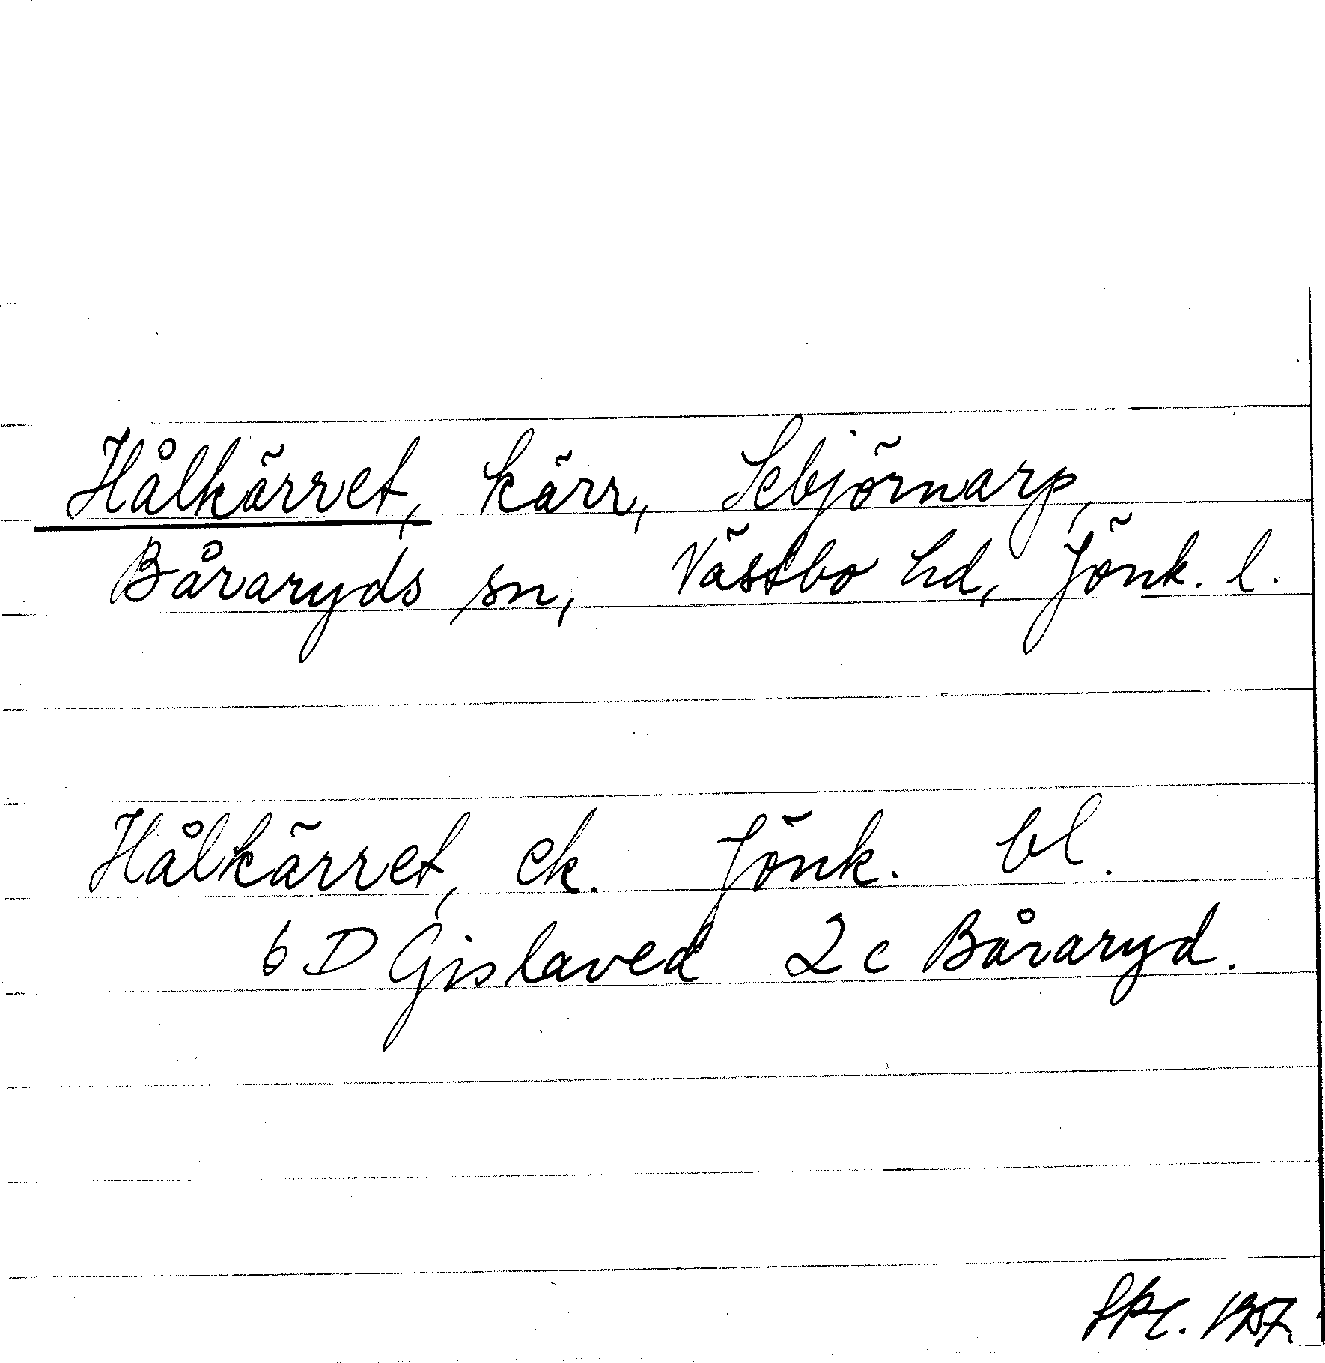 Hålkärret, kärr, Sebjörnarp,
Båraryds sn, Västbo hd, Jönk. l.
Hålkärret, ek. Jönk. bl.
6 D Gislaved 2 c Båraryd.